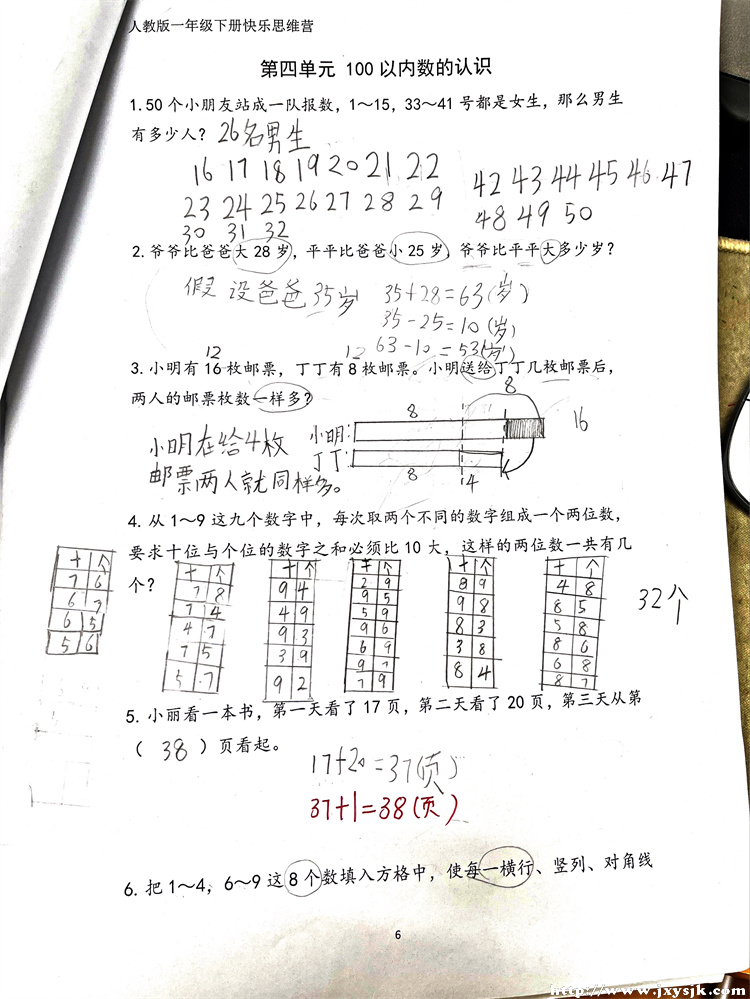 人教版一年级下册快乐思维营
第四单元 100以内数的认识
1.50个小朋友站成一队报数，1～15，33～41号都是女生，那么男生
有多少人？ 26名男生
16 17 18 19 20 21 22
23 24 25 26 27 28 29
30 31 32
42 43 44 45 46 47
48 49 50
2.爷爷比爸爸大28岁，平平比爸爸小25岁，爷爷比平平大多少岁？
假设爸爸35岁
35+28=63(岁)
35-25=10(岁)
63-10=53(岁)
12 12
3.小明有16枚邮票，丁丁有8枚邮票。小明送给丁丁几枚邮票后，
两人的邮票枚数一样多？
8
8
小明: 16
丁丁:
8 4
小明在给4枚
邮票两人就同样多。
4.从1～9这九个数字中，每次取两个不同的数字组成一个两位数，
要求十位与个位的数字之和必须比10大，这样的两位数一共有几
个？
十 个
7 6
6 7
6 5
5 6
十 个
7 8
7 4
4 7
7 5
5 7
十 个
9 4
4 9
9 3
3 9
9 2
十 个
2 9
9 5
5 9
9 6
6 9
9 7
7 9
十 个
8 9
9 8
8 3
3 8
8 4
十 个
4 8
8 5
5 8
8 6
6 8
8 7
32个
5.小丽看一本书，第一天看了17页，第二天看了20页，第三天从第
（ 38 ）页看起。
17+20=37(页)
37+1=38(页)
6.把1～4，6～9这8个数填入方格中，使每一横行、竖列、对角线
6
http://www.jxysjk.com